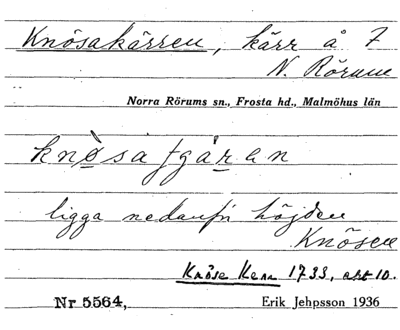 Knösakärren, kärr å 7
N. Rörum
Norra Rörums sn., Frosta hd., Malmöhus län
knø̀saʃgáran
ligga nedanför höjden
Knösen
Knöse Kern 1733, art 10.
Nr 5564, Erik Jehpsson 1936